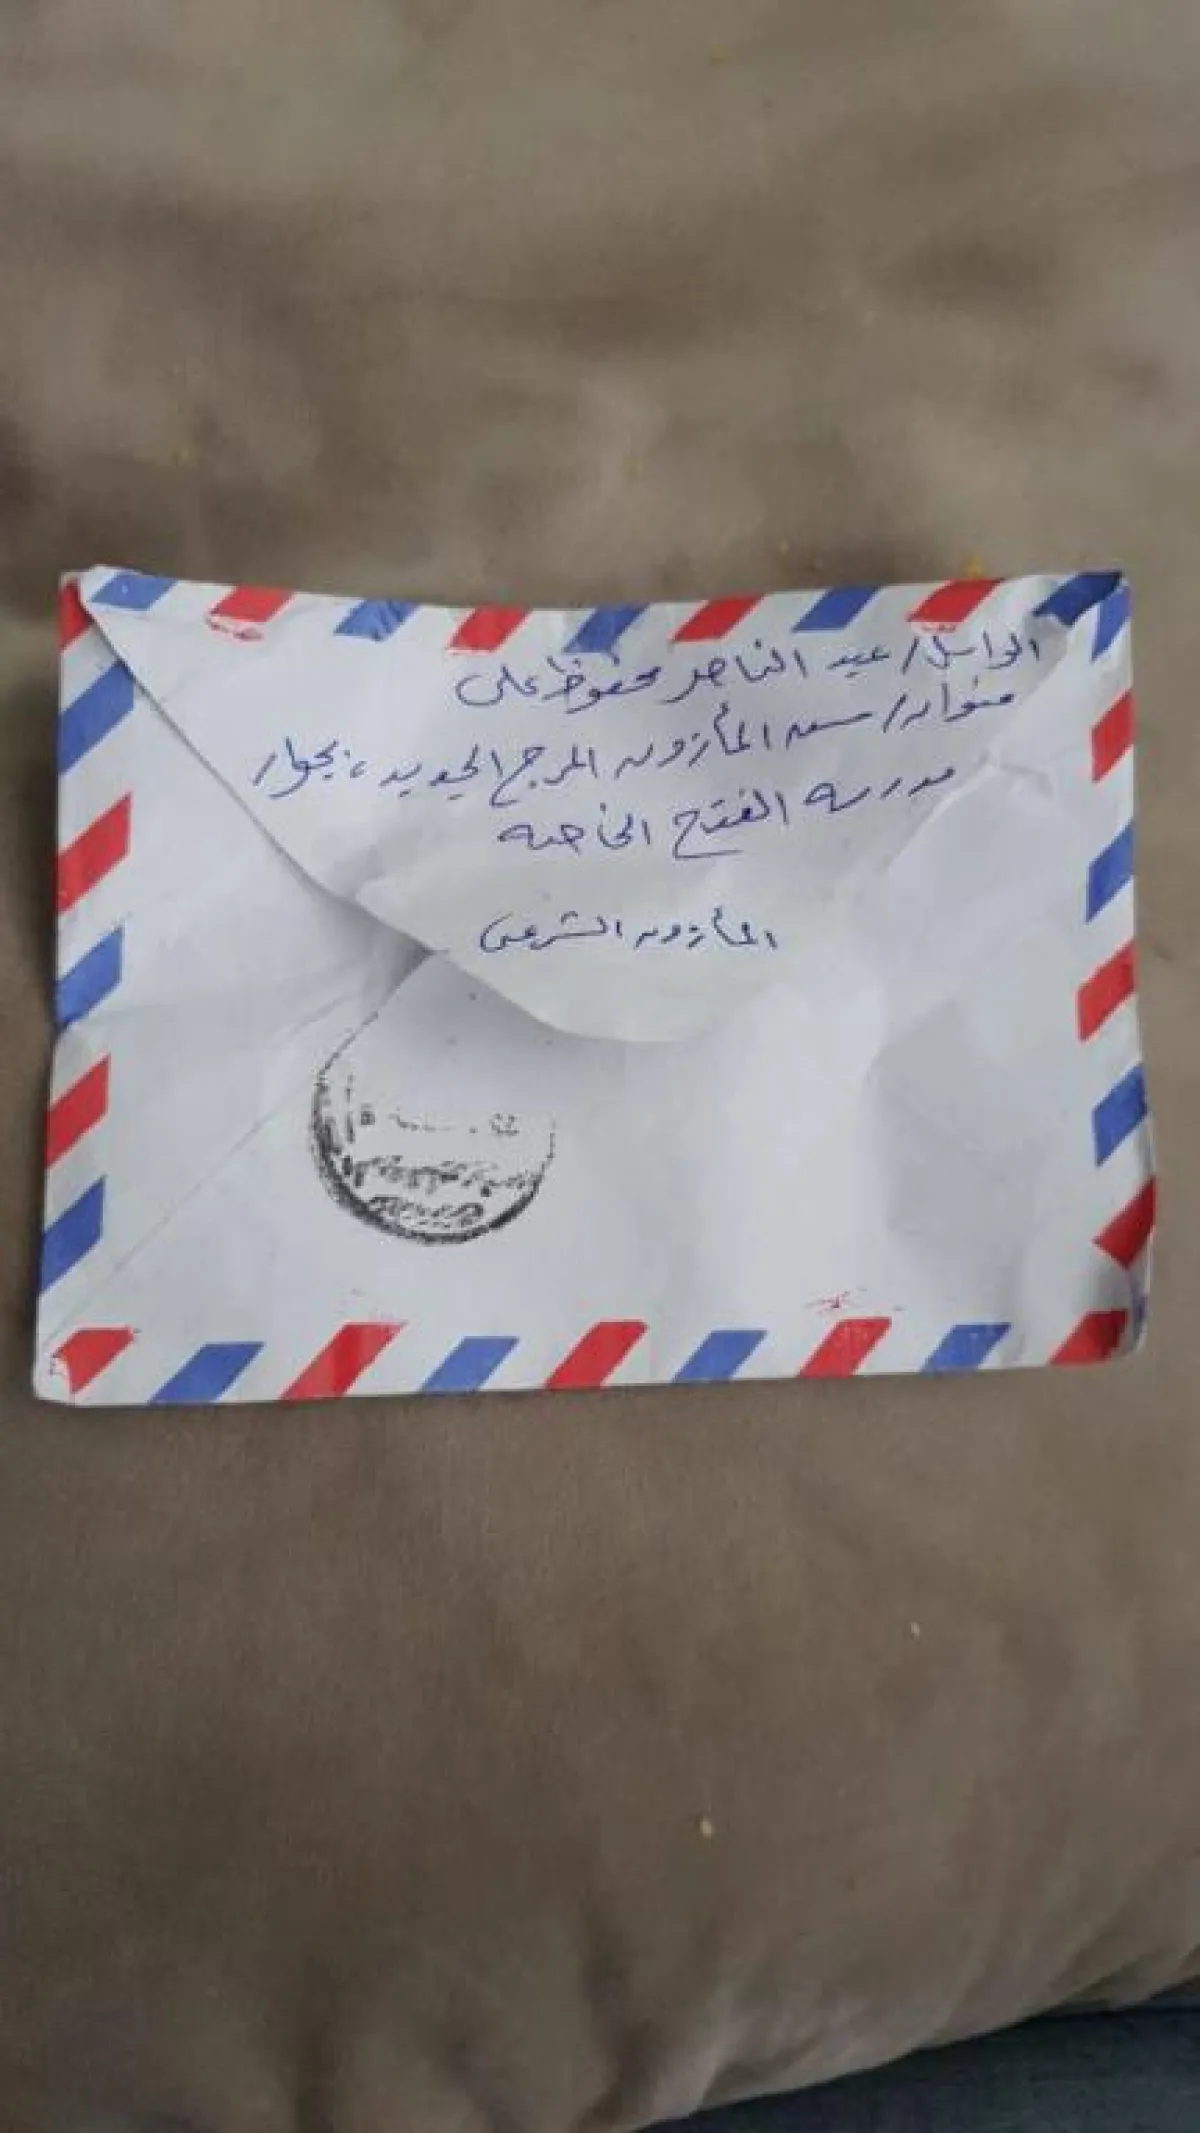 الراسل/ عبد الناصر محفوظ علي
عنوانه/ سعد المأذون المرج الجديد، بجوار
مدرسة الفتح الخاصة
المأذون الشرعي